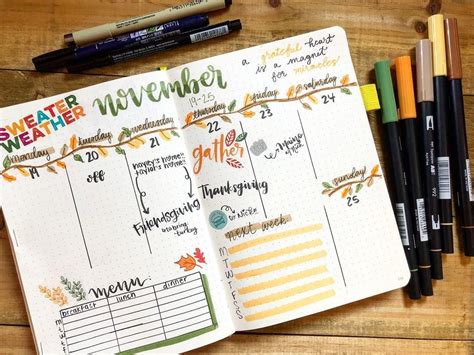 SWEATER
WEATHER
november
19-25
a grateful heart
is a magnet
for miracles
monday
19
tuesday
20
off
wednesday
21
hayley's home!
taylor's home!
Friendsgiving
thursday
22
gather
Thanksgiving
next week
M
T
W
T
F
S
S
friday
23
saturday
24
sunday
25
menu:
breakfast
lunch
dinner
m
t
w